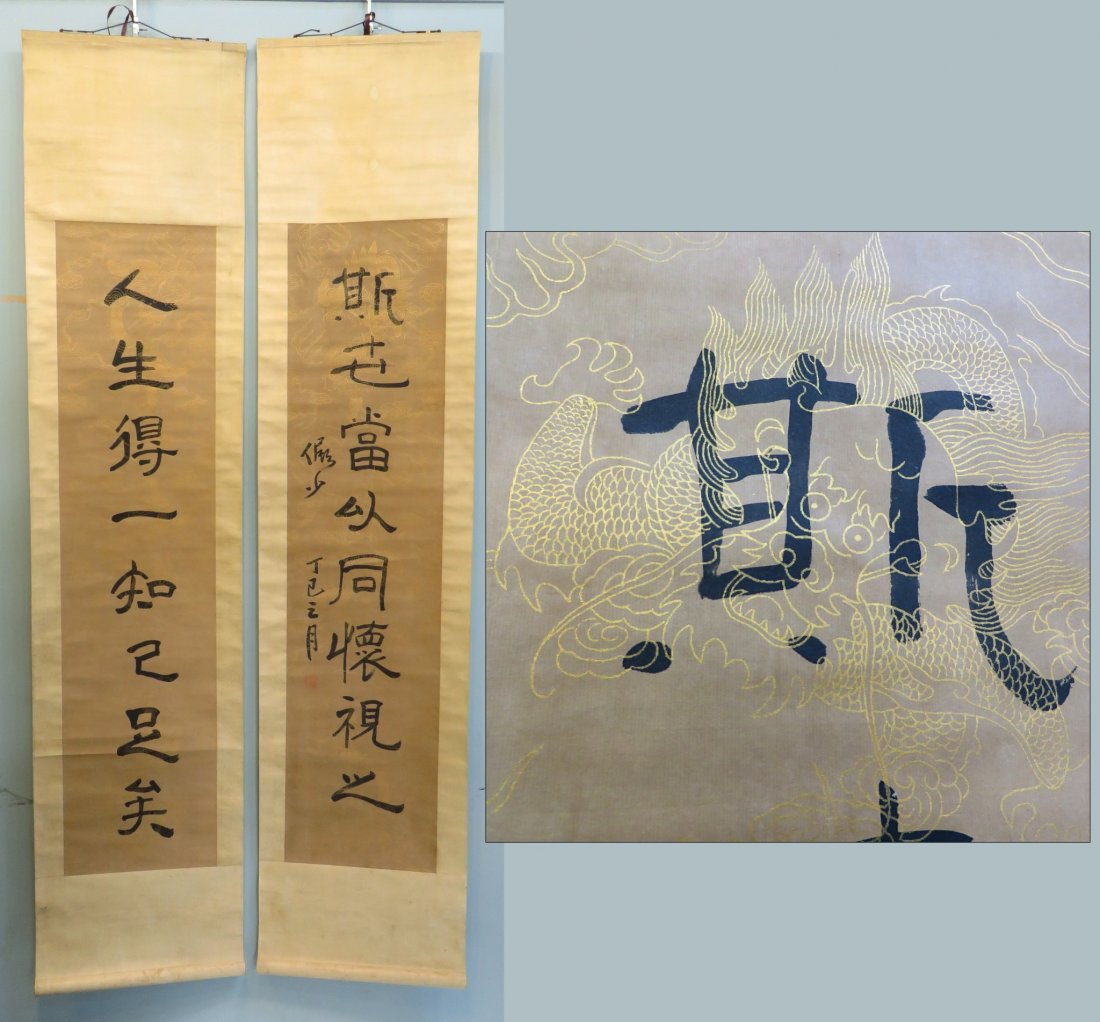 人生得一知己足矣
斯世當以同懷視之
丁巳三月
斯